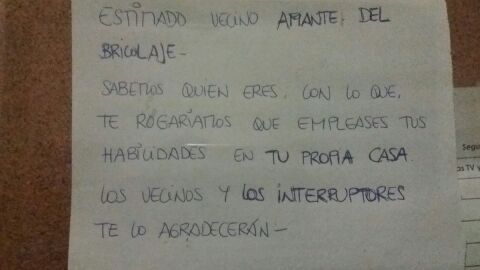 ESTIMADO VECINO AMANTE DEL
BRICOLAJE-
SABEMOS QUIEN ERES. CON LO QUE,
TE ROGARÍAMOS QUE EMPLEASES TUS
HABILIDADES EN TU PROPIA CASA.
LOS VECINOS Y LOS INTERRUPTORES
TE LO AGRADECERÁN-
Segu
os TV y